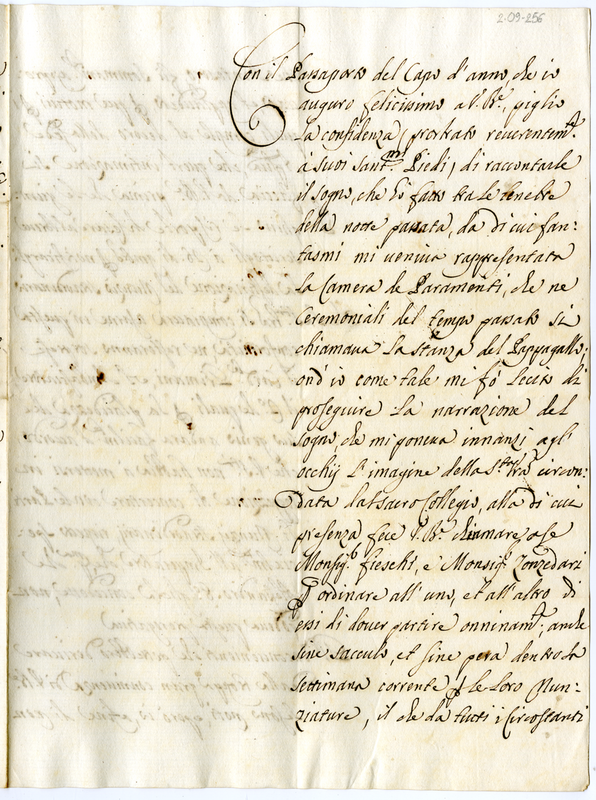 2-09-256
Con il Passaporto del Capo d'anno, che io
auguro felicissimo a V. Bne, piglio
la confidenza (prostrato reverentemte
a' suoi santmi Piedi) di raccontarle
il sogno, che hò fatto tra le tenebre
della notte passata, da di cui fan:
tasmi mi veniva rappresentata
la Camera de Paramenti, che ne
Ceremoniali del tempo passato si
chiamava la stanza del Pappagallo;
ond'io come tale mi fò lecito di
proseguire la narrazione del
sogno, che mi poneva innanzi agl'
occhij l'imagine della Stà Vrã circon:
data dal sacro Collegio, alla di cui
presenza fece V. Bne chiamare a se
Monsigr Fieschi, e Monsigr Zonzedari
p ordinare all'uno, et all'altro di
essi di dover partire onninamte; anche
sine sacculo, et sine pera dentro la
settimana corrente p le loro Nun:
ziature, il che da tutti i Circostanti